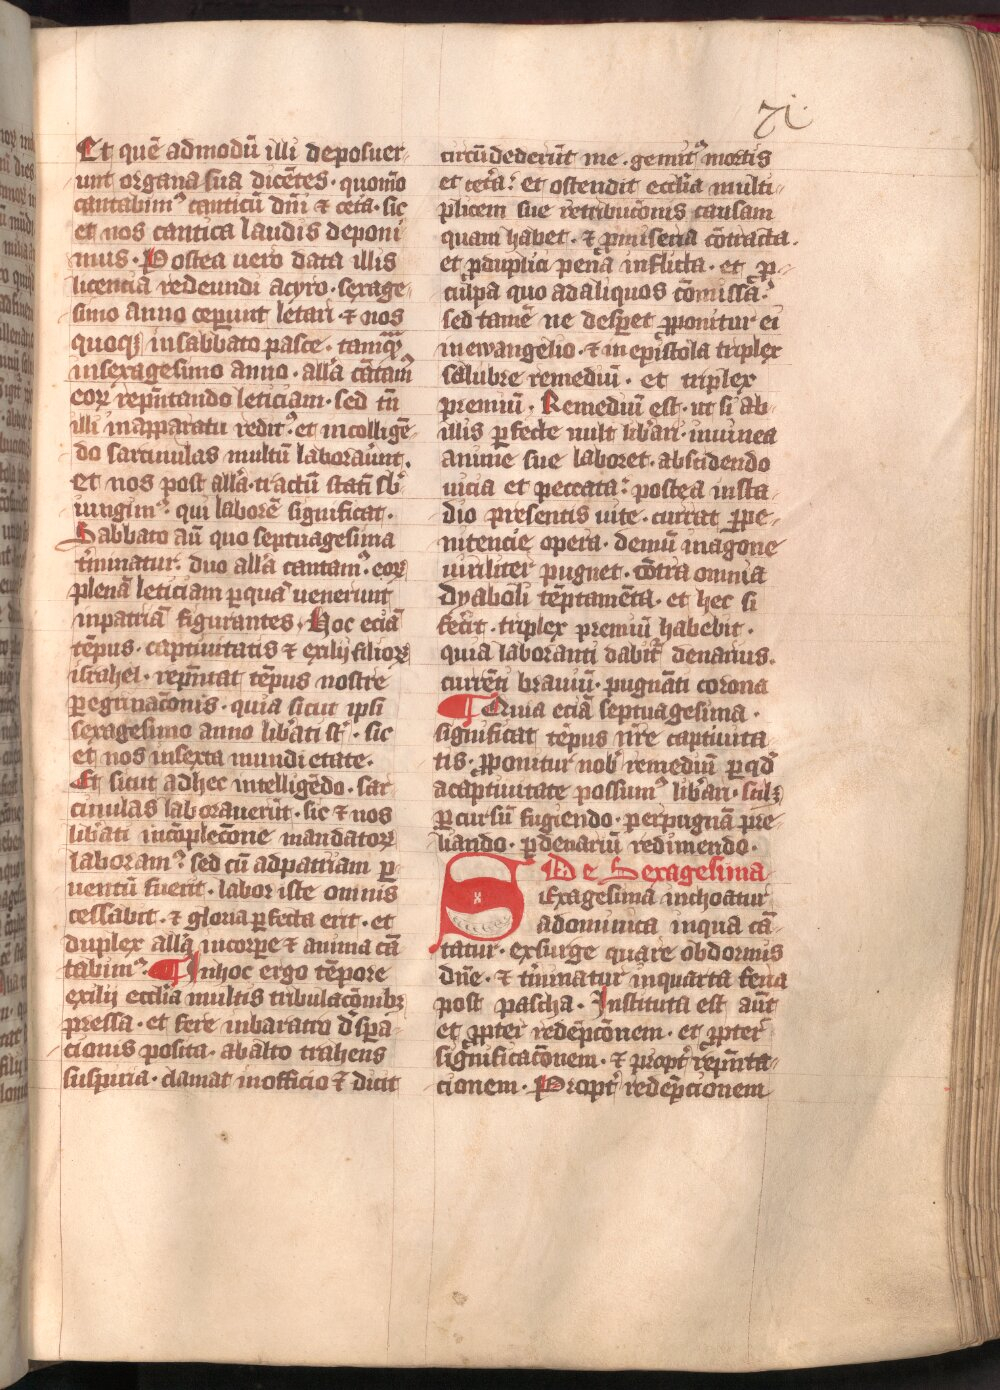 71
Et quē admodū illi deposuer
unt organa sua dicētes · quomo
cantabimꝰ canticū dm̄ ⁊ ceta · sic
et nos cantica laudis deponi
mus · Postea uero data illis
licencia redeundi acyro · sexage
simo anno ceperunt letari ⁊ nos
quoqꝫ insabbato pasce · tamqᷓ
insexagesimo anno · allā cātamꝰ
eoꝝ rep̄ntando leticiam · sed tn̄
illi inapparatu reditꝰ et incolligē
do sarcinulas multū laborauūnt ·
et nos post allā · tractū statī sb̄
iungimꝰ · qui laborē significat ·
Sabbato aū quo septuagesima
t̄minatur · duo allā cantamꝰ · eoꝝ
plenā leticiam ꝑquā uenerunt
inpatriā figurantes · Hoc eciā
tēpus · captiuitatis ⁊ exilij filioꝝ
israhel · rep̄ntat tēpus nostre
ꝑegrinac̄onis · quia sicut ipsi
sexagesimo anno lib̄ati st̄ · sic
et nos insexta mundi etate ·
Et sicut adhec intelligēdo · sar
cinulas laborauerūt · sic ⁊ nos
lib̄ati incōplec̄one mandatoꝝ
laboramꝰ · sed cū adpatriam ꝑ
uentū fuerit · labor iste omnis
cessabit · ⁊ gloria ꝑfecta erit · et
duplex allā incorpe ⁊ anima cā
tabimꝰ · ¶ Inhoc ergo tēpore
exilij eccl̄ia multis tribulac̄onibꝫ
pressa · et fere inbaratro d̄spa
cionis posita · abalto trahens
suspiria · clamat inofficio ⁊ dicit
circū dederūt me · gemitꝰ mortis
et cet̄a · et ostendit eccl̄ia multi
plicem sue retribuc̄onis causam
quam habet · ⁊ ꝓmiseria cōtracta ·
et ꝓduplici pena inflicta · et ꝓ
culpa quo adaliquos cōmissa ·
sed tamē ne desꝑet ꝓponitur ei
inewangelio · ⁊ inepistola triplex
salubre remediū · et triplex
premiū · Remediū est · ut si ab
illis ꝑfecte uult lib̄ari · inuinea
anime sue laboret · abscidendo
uicia et peccata · postea insta
dio presentis uite · currat ꝑpe
nitencie opera · demū inagone
uiriliter pugnet · cōtra omnia
dyaboli tēptamēta · et hec si
fec̄it · triplex premiū habebit ·
quia laboranti dabit᷑ denarius ·
currēti brauiū · pugnāti corona
¶ Quia eciā septuagesima ·
significat tēpus nr̄e captiuita
tis · ꝓponitur nob̄ remediū ꝑqd̄
acaptiuitate possumꝰ lib̄ari · scilꝫ
ꝑcursū fugiendo · ꝑerpugnā pre
liando · ꝑdenariū redimendo ·
De Sexagesima
SExagesima inchoatur
adominica inqua cā
tatur · exsurge quare obdormis
dn̄e · ⁊ t̄minatur inquarta feria
post pascha · Instituta est aūt
et ꝓpter redēpc̄onem · et ꝓpter
significac̄onem · ⁊ propt̄ rep̄nta
cionem · Propt̄ redēpcionem